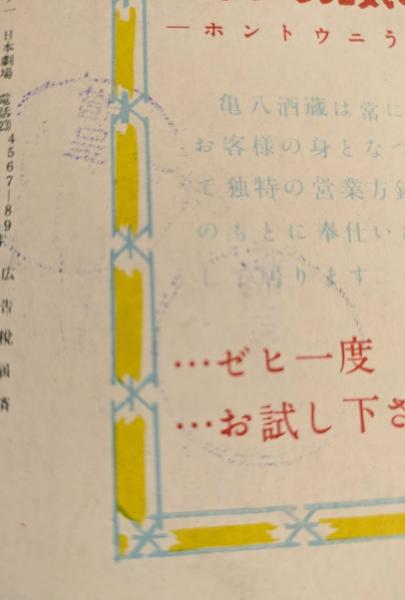 ーホントウニう
亀八酒蔵は常に
お客様の身となつ
て独特の営業方針
のもとに奉仕い
して居ります
…ゼヒ一度
…お試し下さ
日本劇場 電話(23)4567―89
広告税 済